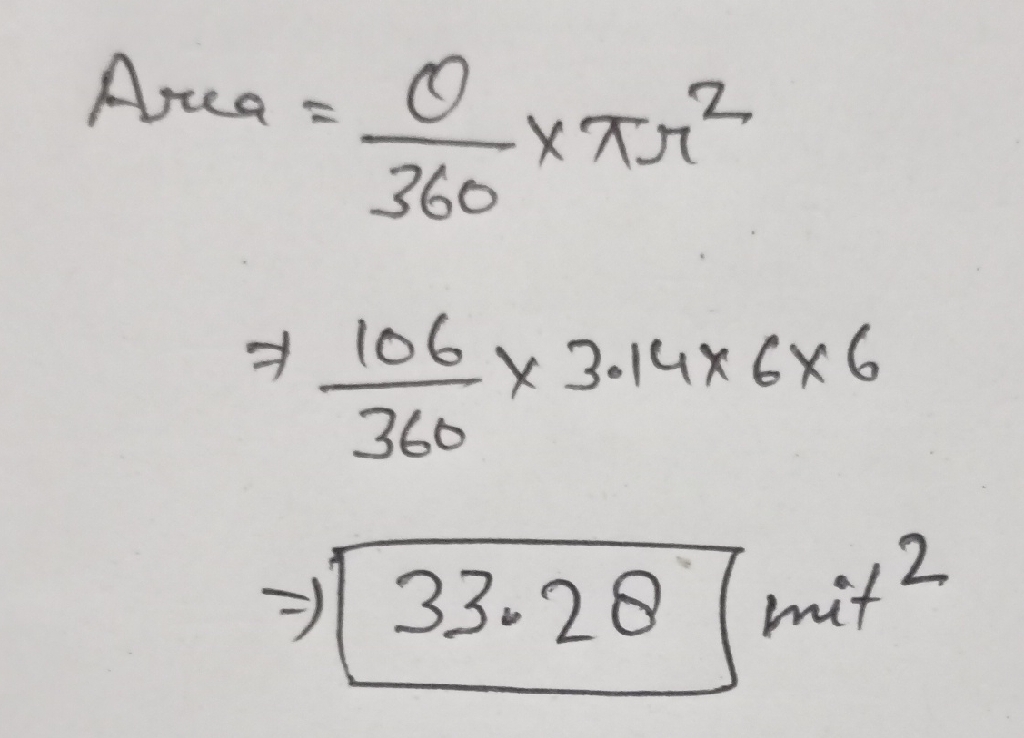 Area = θ/360 × πr²
⇒ 106/360 × 3.14 × 6 × 6
⇒ 33.28 unit²